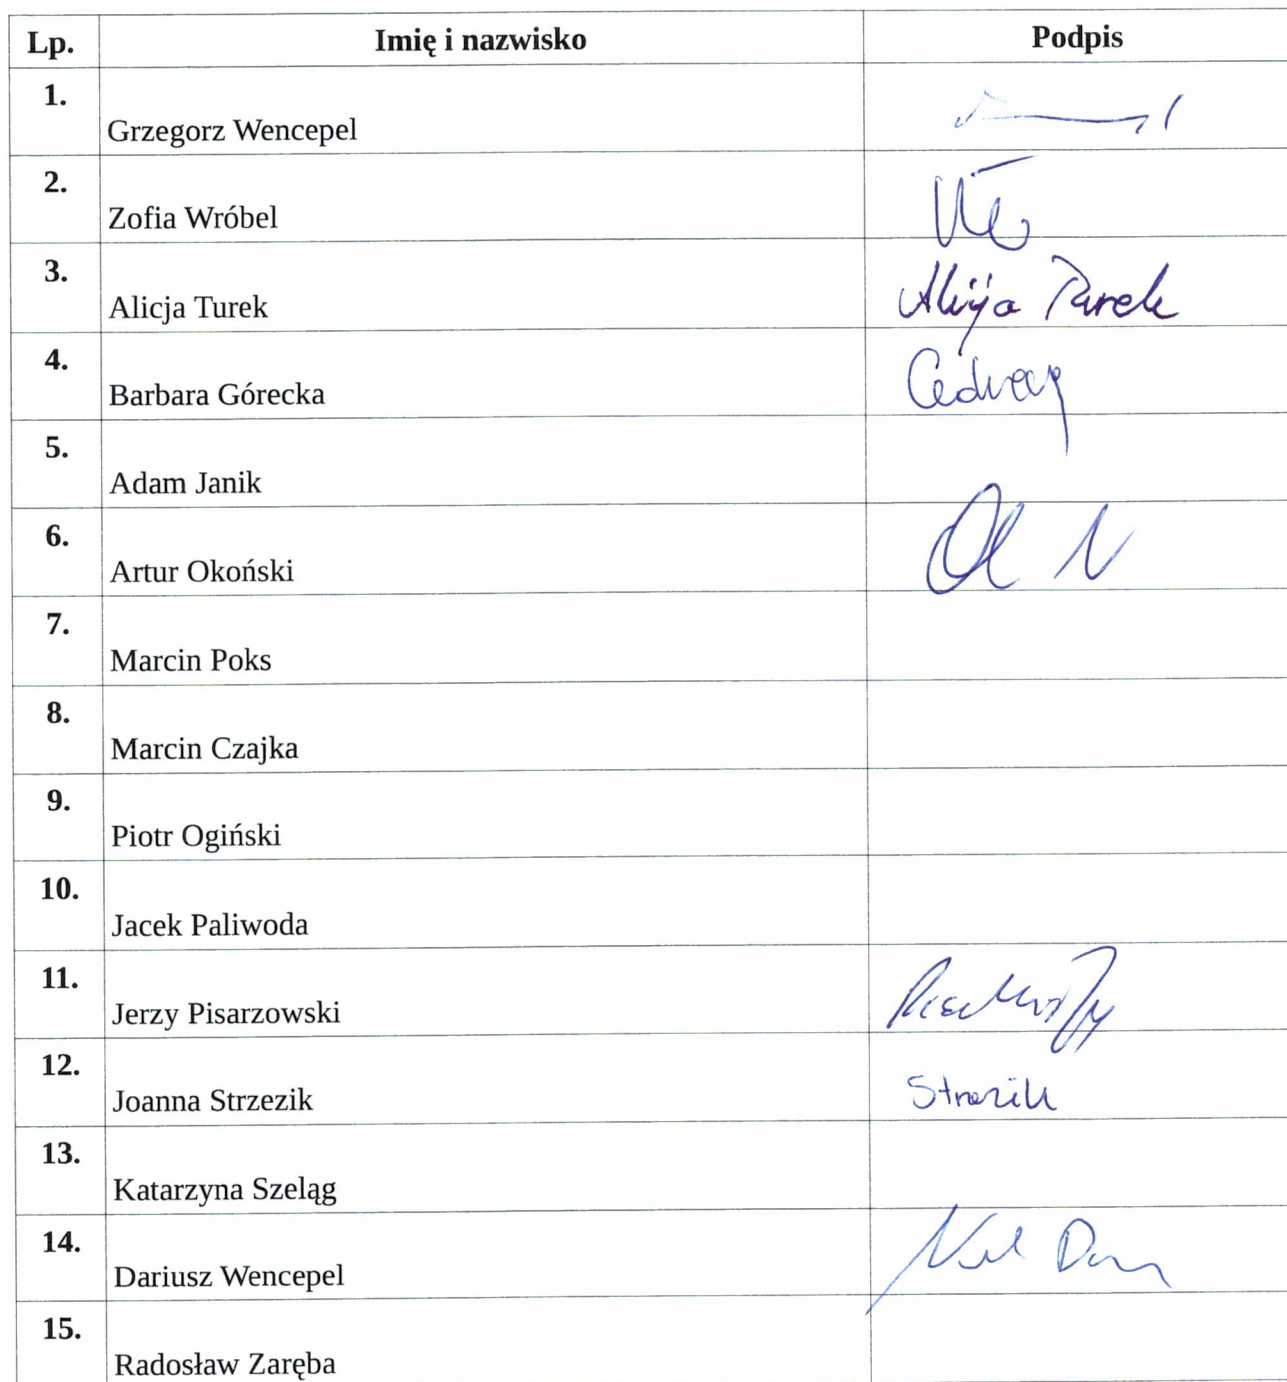 Lp. Imię i nazwisko Podpis
1. Grzegorz Wencepel
2. Zofia Wróbel
3. Alicja Turek Alicja Turek
4. Barbara Górecka
5. Adam Janik
6. Artur Okoński
7. Marcin Poks
8. Marcin Czajka
9. Piotr Ogiński
10. Jacek Paliwoda
11. Jerzy Pisarzowski
12. Joanna Strzezik Strzezik
13. Katarzyna Szeląg
14. Dariusz Wencepel
15. Radosław Zaręba